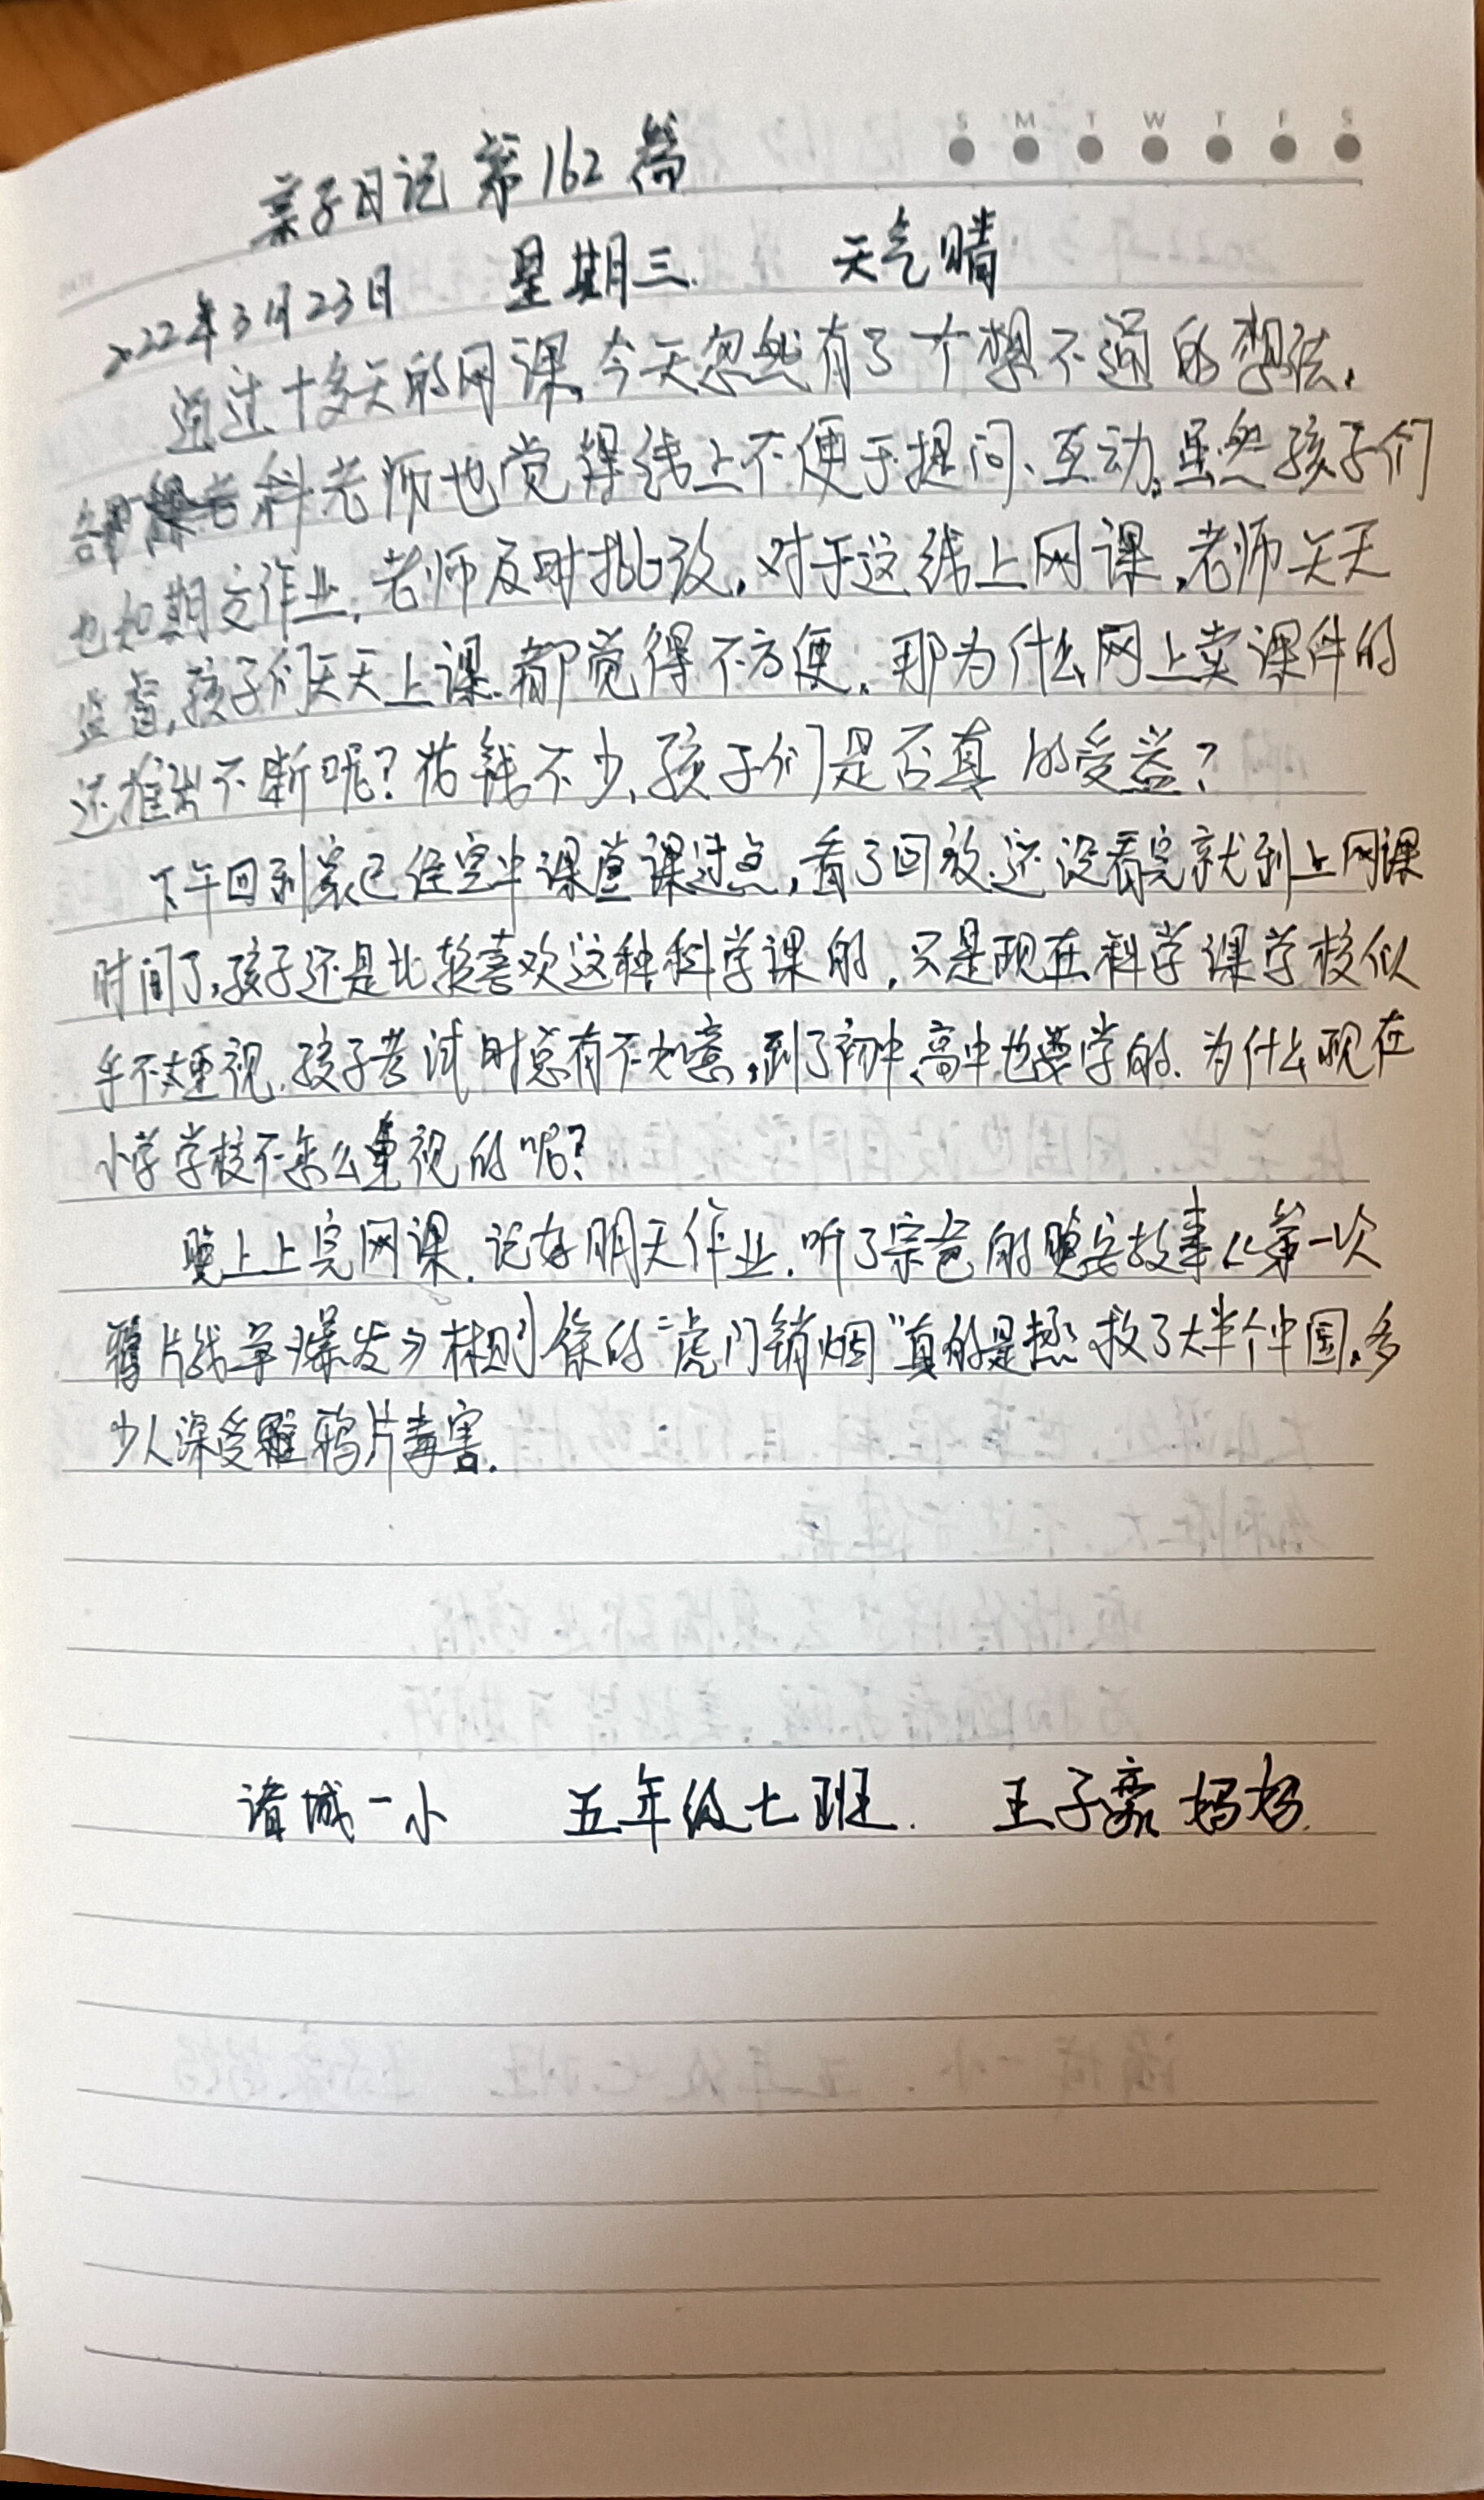 S M T W T F S
亲子日记 第162篇
2022年3月23日 星期三. 天气晴
通过十多天的网课,今天忽然有了个想不通的想法.
各科老师也觉得线上不便于提问、互动,虽然孩子们
也如期交作业,老师及时批改,对于这线上网课,老师天天
监督,孩子们天天上课.都觉得不方便,那为什么网上卖课件的
还推出不断呢?花钱不少,孩子们是否真的受益?
下午回到家已经空中课堂课过点,看了回放.还没看完就到上网课
时间了,孩子还是比较喜欢这种科学课的,只是现在科学课学校似
乎不太重视.孩子考试时总有不如意,到了初中、高中也要学的.为什么现在
小学学校不怎么重视的呢?
晚上上完网课.记好明天作业.听了宗爸的晚安故事《第一次
鸦片战争爆发》林则徐的“虎门销烟”真的是拯救了大半个中国,多
少人深受鸦片毒害.
诸城一小 五年级七班. 王子豪妈妈.